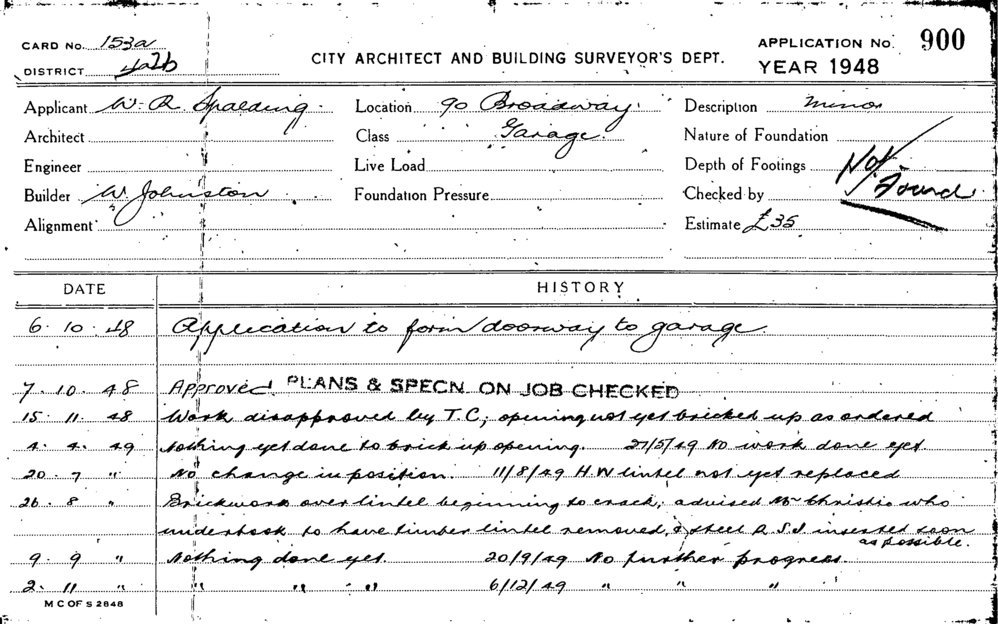 CARD No. 153a
DISTRICT
CITY ARCHITECT AND BUILDING SURVEYOR'S DEPT.
APPLICATION No. 900
YEAR 1948
Applicant W. R. Spalding Location 90 Broadway Description minor
Architect Class Garage. Nature of Foundation
Engineer Live Load Depth of Footings Not Found
Builder W. Johnston Foundation Pressure Checked by
Alignment Estimate £35
DATE HISTORY
6. 10. 48 Application to form doorway to garage
7. 10. 48 Approved PLANS & SPECN. ON JOB CHECKED
15. 11. 48 Work disapproved by T.C; opening not yet bricked up as ordered
4. 4. 49 Nothing yet done to brick up opening. 27/5/49 No work done yet.
20. 7 " No change in position. 11/8/49 H.W lintel not yet replaced
26. 8 " Brickwork over lintel beginning to crack; advised Mr Christie who
undertook to have timber lintel removed & steel R.S.J. inserted soon
as possible.
9. 9 " Nothing done yet. 20/9/49 No further progress.
2. 11 " " " " " 6/12/49 " " "
M C OF S 2848